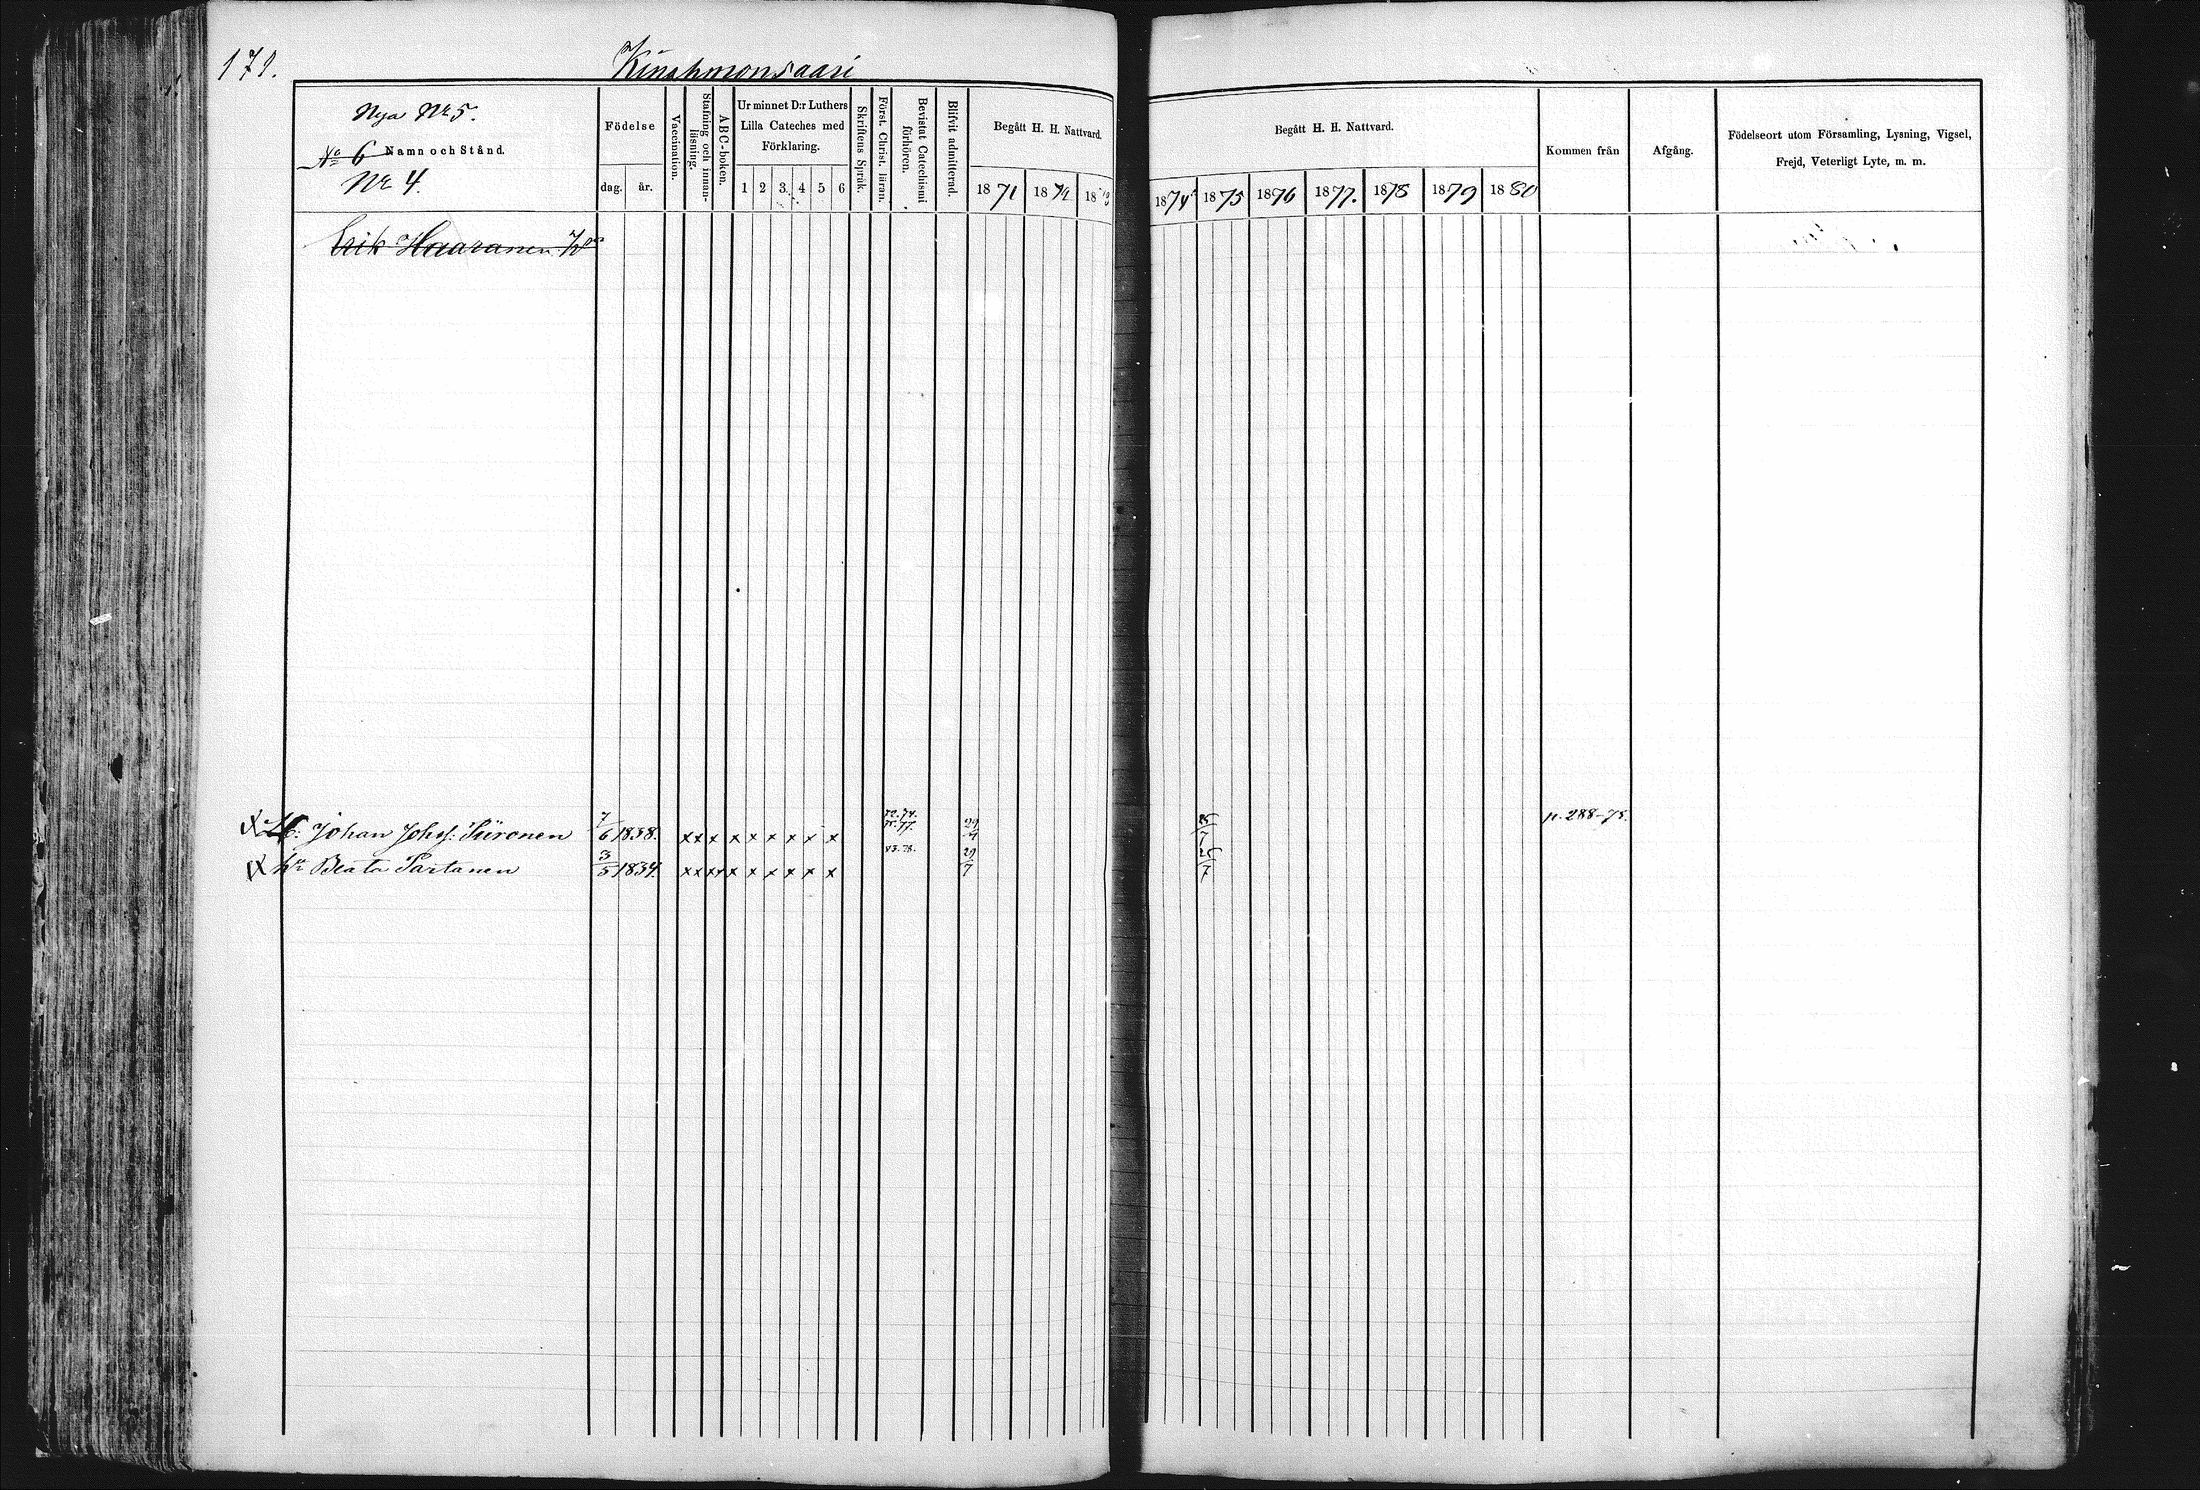 171.
Kinahmonsaari
Nya No 5.
No 6 Namn och Stånd.
No 4.
Födelse
dag. år.
Vaccination.
Stafning och innan-läsning.
ABC-boken.
Ur minnet D:r Luthers
Lilla Cateches med
Förklaring.
1 2 3 4 5 6
Skriftens Språk.
Först. Christ. läran.
Bevistat Catechismi förhören.
Blifvit admitterad.
Begått H. H. Nattvard.
1871 1872 18
Begått H. H. Nattvard.
1874 1875 1876 1877. 1878 1879 1880
Kommen från
Afgång.
Födelseort utom Församling, Lysning, Vigsel,
Frejd, Veterligt Lyte, m. m.
Erik Haaranen
Johan Johs: Siironen 7/6 1838. x x x x x x x x x 72. 74. 75. 77. p. 288-75.
hu Beata Partanen 3/5 1834. x x x x x x x x x x 73. 75. 29/7